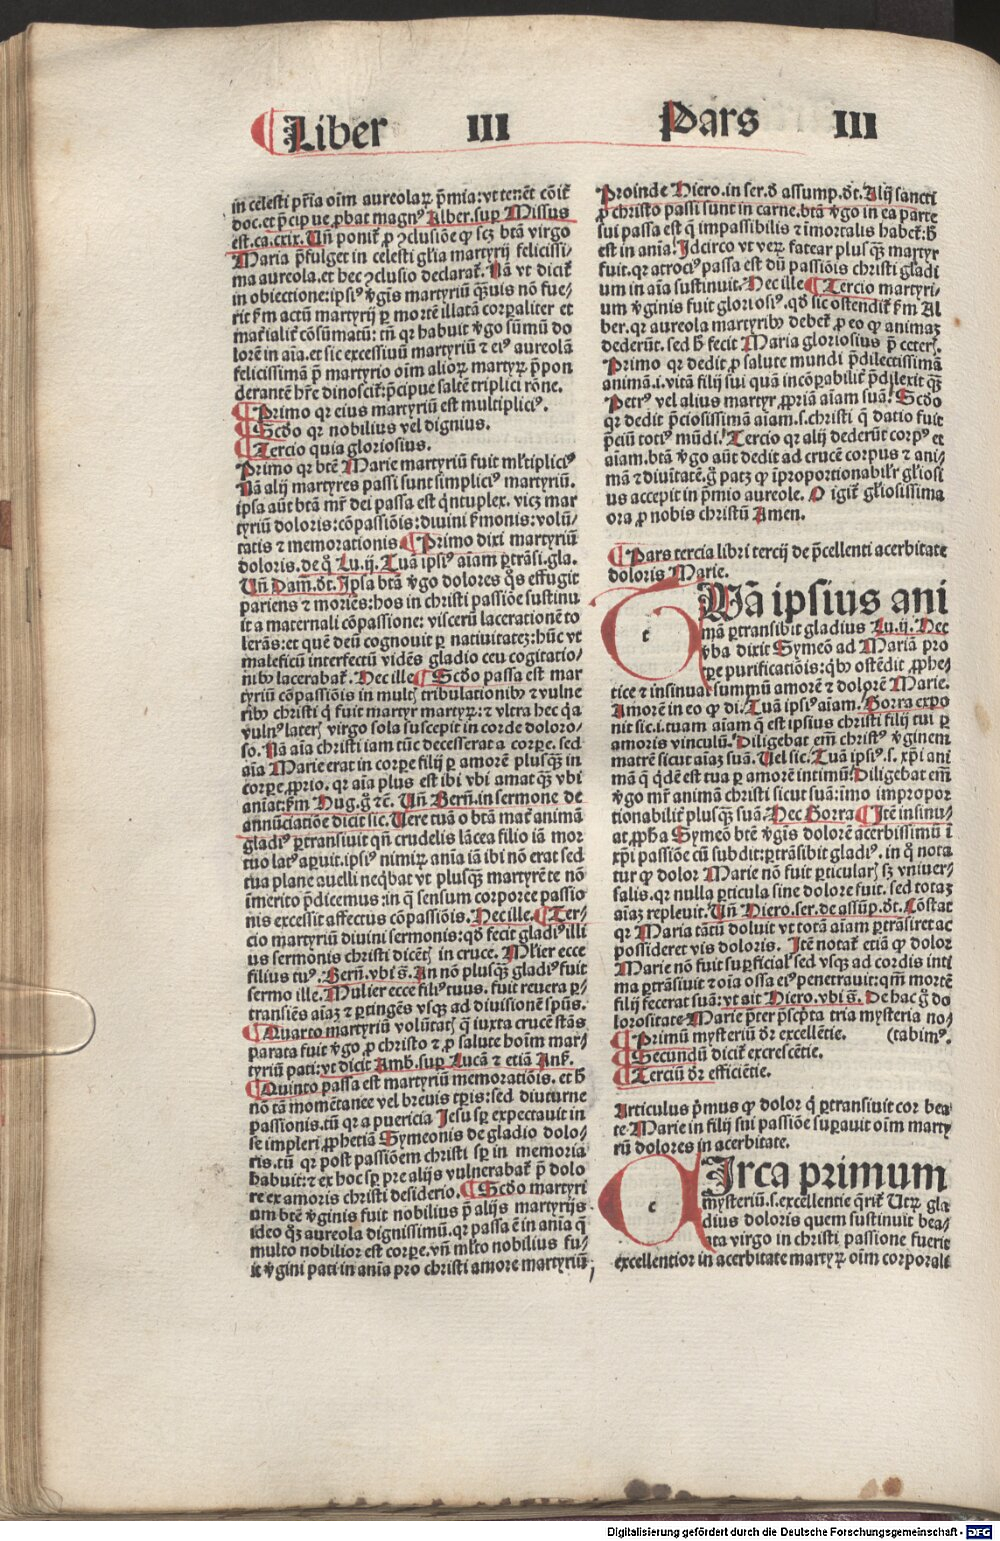 Liber III Pars III
in celesti pr̄ia oīm aureolaꝝ p̄mia: vt tenēt cōit̄
doc. et p̄cipue ꝓbat magnꝰ Alber. sup Missus
est. ca. cxix. Vn̄ ponit̄ ꝓ ꝯclusiōe ꝙ scꝫ btā virgo
Maria p̄fulget in celesti gl̄ia martyrij felicissi⸗
ma aureola. et hec ꝯclusio declarat̄. Nā vt dicit̄
in obiectione: ipsiꝰ v̄gīs martyriū qͣuis nō fue⸗
rit ẜm actū martyrij ꝑ mortē illatā corꝑaliter et
mat̄ialit̄ cōsūmatū: tn̄ qꝛ habuit v̄go sūmū do
lorē in aīa. et sic excessiuū martyriū ⁊ eiꝰ aureolā
felicissimā p̄ martyrio oīm alioꝝ martyꝝ p̄pon
derantē hr̄e dinoscit̄: p̄cipue saltē triplici rōne.
Primo qꝛ eius martyriū est multipliciꝰ.
Scd̄o qꝛ nobilius vel dignius.
Tercio quia gloriosius.
Primo qꝛ btē Marie martyriū fuit ml̄tipliciꝰ
Nā alij martyres passi sunt simpliciꝰ martyriū.
ipsa aūt btā mr̄ dei passa est qͥntuplex. vicꝫ mar
tyriū doloris: cōpassiōis: diuini ẜmonis: volū⸗
tatis ⁊ memorationis Primo dixi martyriū
doloris. de qͦ Lu. ij. Tuā ipsiꝰ aīam ꝑtrāsi. gla.
Vn̄ Dam̄. dt̄. Ipsa btā v̄go dolores qͦs effugit
pariens ⁊ moriēs: hos in christi passiōe sustinu
it a maternali cōpassione: visceꝝ lacerationē to
lerās: et quē deū cognouit ꝑ natiuitatē: hūc vt
maleficū interfectū vidēs gladio ceu cogitatio⸗
nibꝰ lacerabat̄. Hec ille Scd̄o passa est mar
tyriū cōpassiōis in multꝭ tribulationibꝰ ⁊ vulne
ribꝰ christi qͥ fuit martyr martyꝝ: ⁊ vltra hec qͣa
vulnꝰ laterꝭ virgo sola suscepit in corde doloro⸗
so. Nā aīa christi iam tūc decesserat a corꝑe. sed
aīa Marie erat in corꝑe filij ꝑ amorē plusqͣꝫ in
corꝑe ꝓprio. qꝛ aīa plus est ibi vbi amat qͣꝫ vbi
aniat: ẜm Hug. gͦ ⁊c̄. Vn̄ Bern̄. in sermone de
annūciatiōe dicit sic. Vere tuā o btā mat̄ animā
gladiꝰ ꝑtransiuit qn̄ crudelis lācea filio iā mor
tuo latꝰ aꝑuit. ipsiꝰ nimiꝝ anīa iā ibi nō erat sed
tua plane auelli neqͥbat vt plusqͣꝫ martyrē te nō
īmerito p̄dicemus: in qͣ sensum corporee passio
nis excessit affectus cōpassiōis. Hec ille. Ter⸗
cio martyriū diuini sermonis: qd̄ fecit gladiꝰ illi
us sermōnis christi dicētꝭ in cruce. Ml̄ier ecce
filius tuꝰ. Bern̄. vbi s̄. An nō plusqͣꝫ gladiꝰ fuit
sermo ille. Mulier ecce filiꝰ tuus. fuit reuera ꝑ⸗
transiēs aīaꝫ ⁊ ꝑtingēs vsqꝫ ad diuisionē spūs.
Quarto martyriū volūtatꝭ qͣ iuxta crucē stās
parata fuit v̄go ꝓ christo ⁊ ꝓ salute hoīm mar⸗
tyriū pati: vt dicit Amb. sup Lucā ⁊ etiā Ans̄.
Quinto passa est martyriū memoratiōis. et h̄
nō tā momētanee vel breuis tꝑis: sed diuturne
ꝑassionis. tū qꝛ a puericia Jesu sꝑ expectauit in
se impleri ꝓphetiā Symeonis de gladio dolo⸗
ris. tū qꝛ post passiōem christi sꝑ in memoria
habuit: ⁊ ex hoc sꝑ pre alijs vulnerabat̄ p̄ dolo
re ex amoris christi desiderio. Scd̄o martyri
um btē v̄ginis fuit nobilius p̄ alijs martyrijs.
ideo qͦꝫ aureola dignissimū. qꝛ passa ē in anīa qͣ
multo nobilior est corꝑe. vn̄ ml̄to nobilius fu⸗
it v̄gini pati in anīa pro christi amore martyriū
Proinde Hiero. in ser. d̄ assump. dt̄. Alij sancti
ꝓ christo passi sunt in carne. btā v̄go in ea parte
sui passa est qͣ impassibilis ⁊ īmortalis habet̄: h̄
est in anīa. Idcirco vt veꝝ fatear plus qͣꝫ martyr
fuit. qꝛ atrociꝰ passa est dū passiōis christi gladi
um in aīa sustinuit. Hec ille Tercio martyri⸗
um v̄ginis fuit gloriosiꝰ. qd̄ sic ostendit̄ ẜm Al
ber. qꝛ aureola martyribꝰ debet̄ ꝓ eo ꝙ animaꝫ
dederūt. sed h̄ fecit Maria gloriosius p̄ ceterꝭ.
Primo qꝛ dedit ꝓ salute mundi p̄dilectissimā
animā. i. vitā filij sui quā incōꝑabilit̄ p̄dilexit qͣꝫ
Petrꝰ vel alius martyr ꝓpriā aīam suā. Scd̄o
qꝛ dedit p̄ciosissimā aīam. s. christi qͣ datio fuit
p̄ciū totiꝰ mūdi. Tercio qꝛ alij dederūt corpꝰ et
aīam. btā v̄go aūt dedit ad crucē corpus ⁊ ani⸗
mā ⁊ diuītatē. gͦ patꝫ ꝙ īproportionabilr̄ gl̄iosi
us accepit in p̄mio aureole. O igit̄ gl̄iosissima
ora ꝓ nobis christū Amen.
Pars tercia libri tercij de p̄cellenti acerbitate
doloris Marie.
t
TUā ipsius ani
mā ꝑtransibit gladius Lu. ij. Hec
v̄ba dixit Symeō ad Mariā pro
tꝑe purificatiōis: qͥbꝰ ostēdit ꝓphe⸗
tice ⁊ insinuat summū amorē ⁊ dolorē Marie.
Amorē in eo ꝙ di. Tuā ipsiꝰ aīam. Gorra expo
nit sic. i. tuam aīam qͣ est ipsius christi filij tui ꝑ
amoris vinculū. Diligebat em̄ christꝰ v̄ginem
matrē sicut aīaꝫ suā. Vel sic. Tuā ipsiꝰ. s. xp̄i ani
mā qͣ qͥdē est tua ꝑ amorē intimū: Diligebat em̄
v̄go mr̄ animā christi sicut suā: īmo impropor
tionabilit̄ plusqͣꝫ suā. Hec Gorra Itē insinu⸗
at ꝓph̄a Symeō btē v̄gīs dolorē acerbissimū ī
xp̄i passiōe cū subdit: ꝑtrāsibit gladiꝰ. in qͦ nota
tur ꝙ dolor Marie nō fuit ꝑticularꝭ sꝫ vniuer⸗
salis. qꝛ nulla ꝑticula sine dolore fuit. sed totaꝫ
aīaꝫ repleuit. Vn̄ Hiero. ser. de assūp. dt̄. Cōstat
qꝛ Maria tātū doluit vt totā aīam ꝑtrāsiret ac
possideret vis doloris. Itē notat̄ etiā ꝙ dolor
Marie nō fuit suꝑficial̄ sed vsqꝫ ad cordis inti
ma ꝑtrāsiuit ⁊ oīa ossa eiꝰ penetrauit: qm̄ mortē
filij fecerat suā: vt ait Hiero. vbi s̄. De hac gͦ do
lorositate Marie p̄ter p̄scp̄ta tria mysteria no⸗
Primū mysteriū dr̄ excellētie. (tabimꝰ.
Secundū dicit̄ excrescētie.
Terciū dr̄ efficiētie.
Articulus p̄mus ꝙ dolor qͥ ꝑtransiuit cor bea
te Marie in filij sui passiōe suꝑauit oīm marty
rū dolores in acerbitate.
c
CIrca primum
mysteriū. s. excellentie qͣrit̄ Vtꝝ gla
dius doloris quem sustinuit bea⸗
ta virgo in christi passione fuerit
excellentior in acerbitate martyꝝ oīm corporali
Digitalisierung gefördert durch die Deutsche Forschungsgemeinschaft - DFG